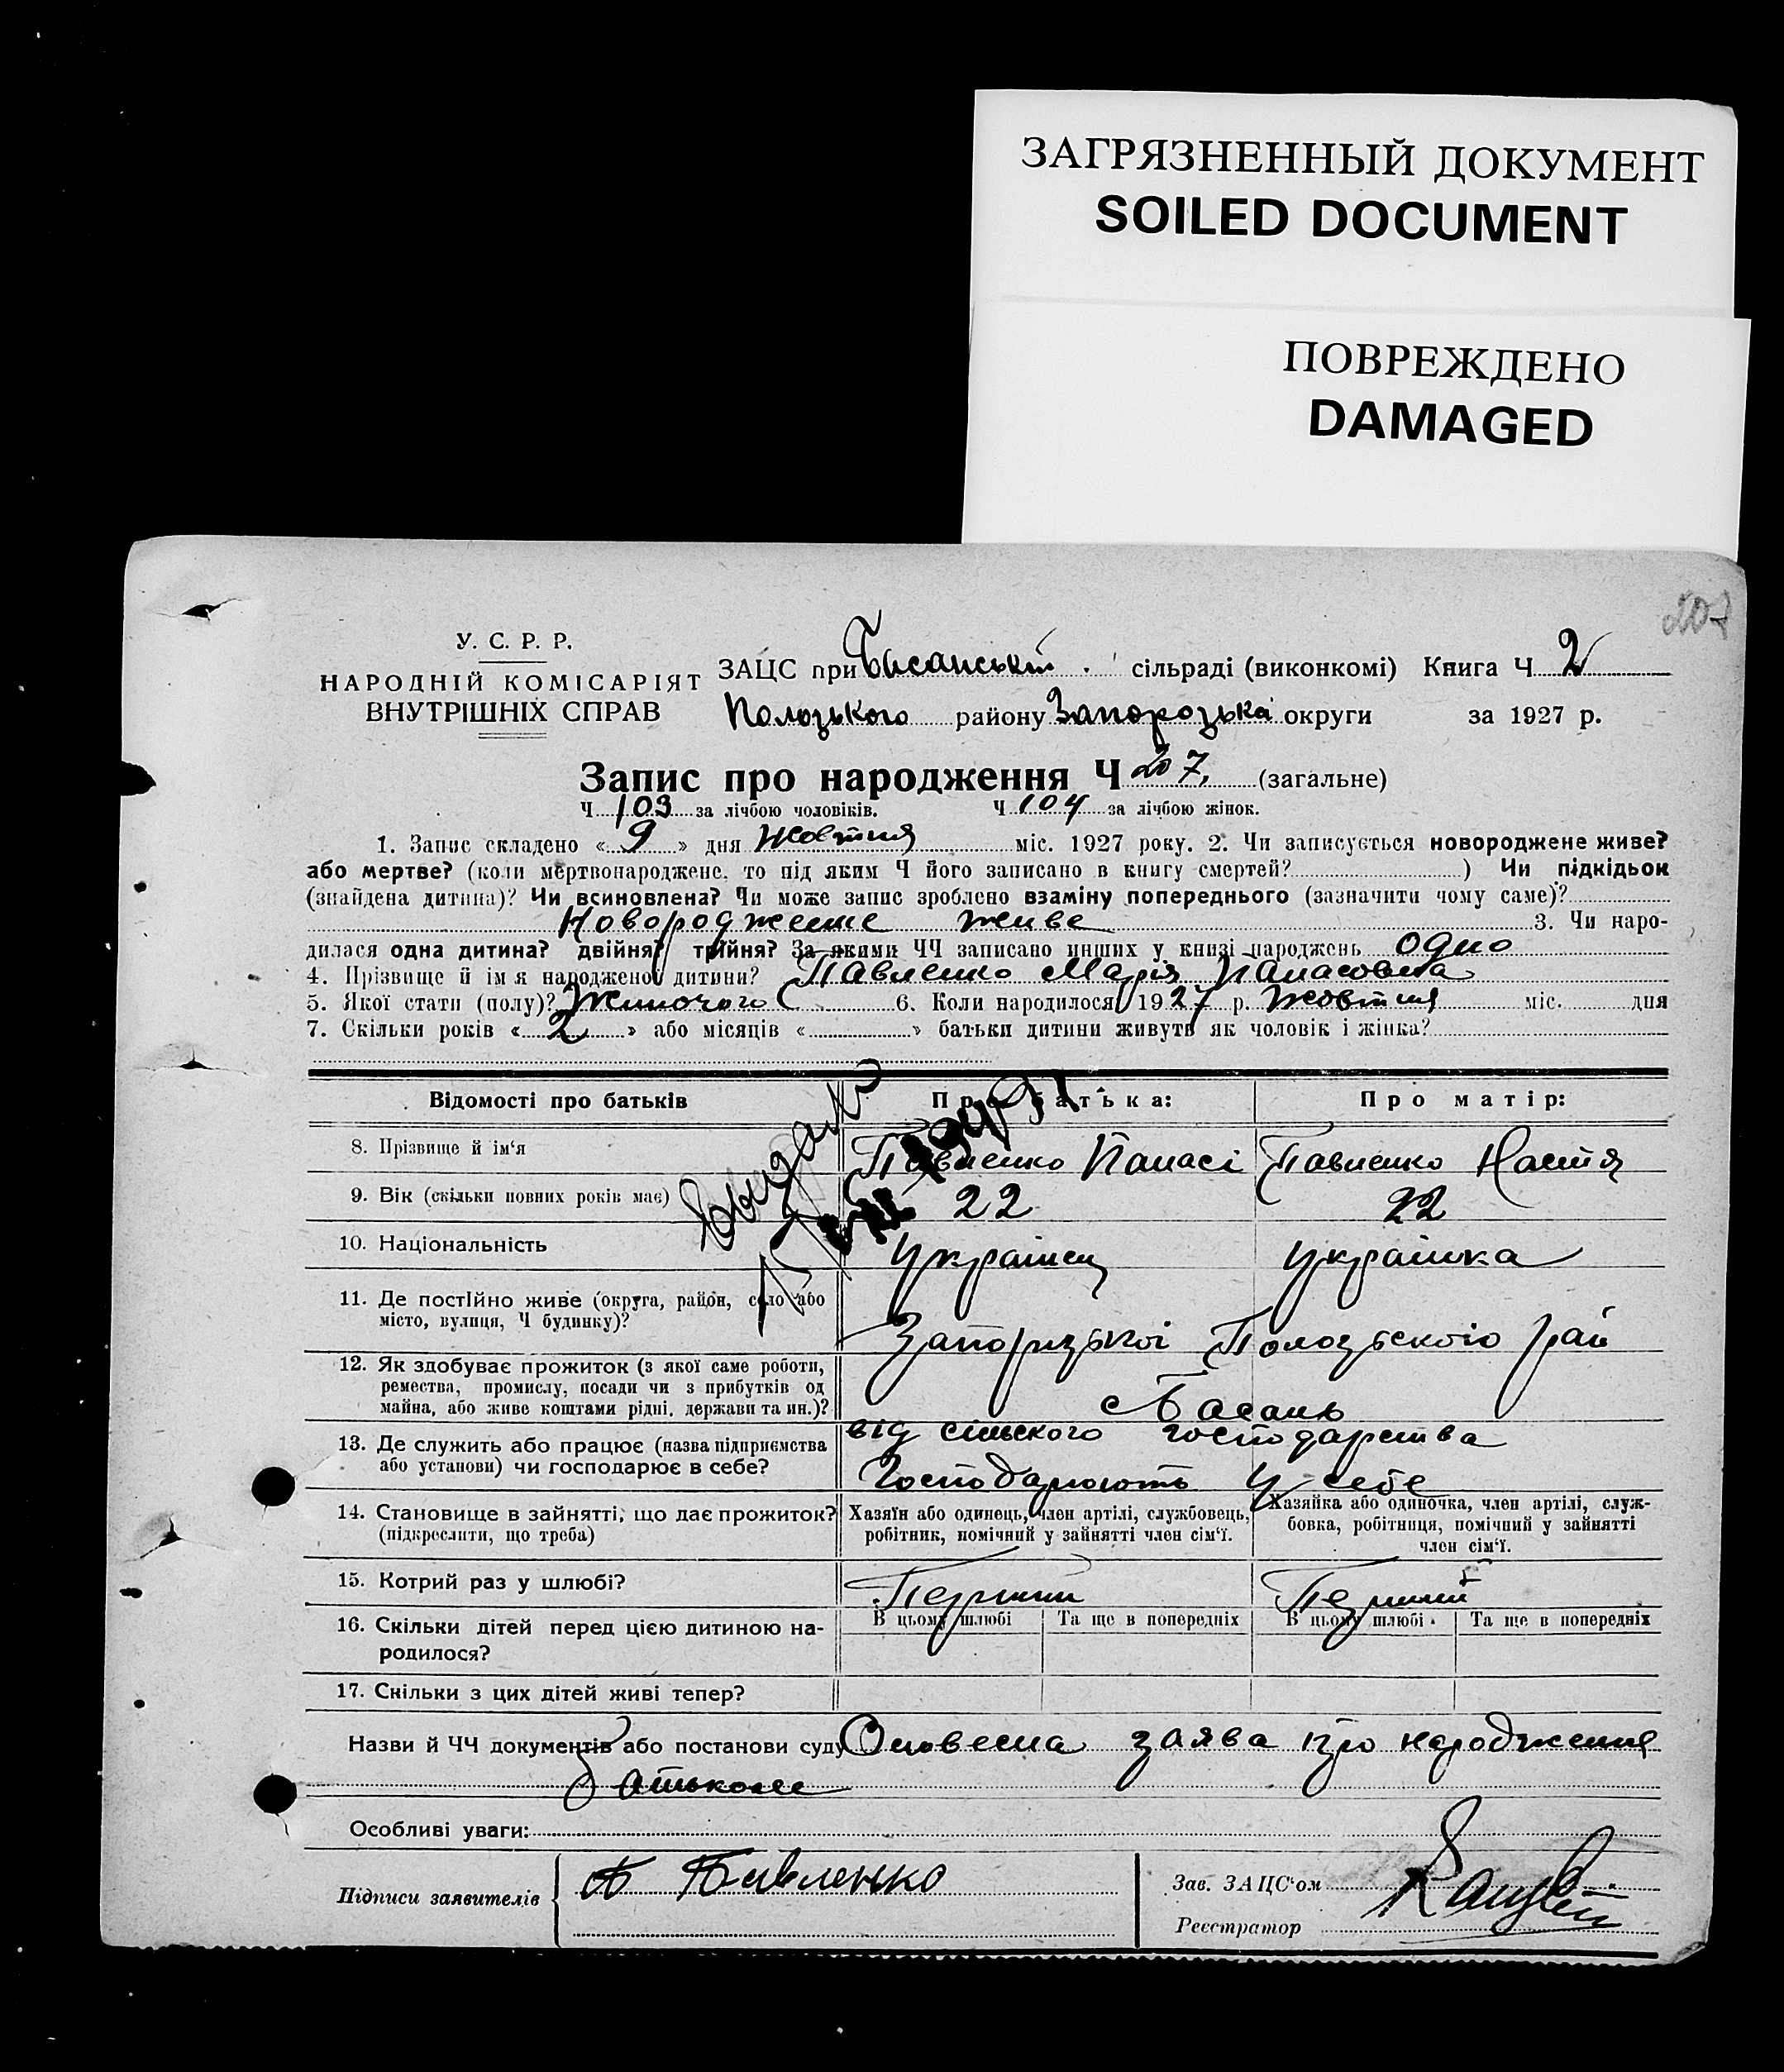 ЗАГРЯЗНЕННЫЙ ДОКУМЕНТ
SOILED DOCUMENT
ПОВРЕЖДЕНО
DAMAGED
207
У. С. Р. Р.
НАРОДНІЙ КОМІСАРІЯТ
ВНУТРІШНІХ СПРАВ
ЗАЦС при Басанській сільраді (виконкомі) Книга Ч 2
Пологського району Запорозька округи за 1927 р.
Запис про народження Ч 207. (загальне)
Ч 103 за лічбою чоловіків. Ч 104 за лічбою жінок.
1. Запис складено « 9 » дня Жовтня міс. 1927 року. 2. Чи записується новороджене живе?
або мертве? (коли мертвонароджене, то під яким Ч його записано в книгу смертей? ) Чи підкідьок
(знайдена дитина)? Чи всиновлена? Чи може запис зроблено взаміну попереднього (зазначити чому саме)?
Новороджене живе 3. Чи наро-
дилася одна дитина? двійня? трійня? За якими ЧЧ записано инших у книзі народжень одно
4. Прізвище й ім я народженої дитини? Павленко Марія Панасовна
5. Якої стати (полу)? Жиночого 6. Коли народилося 1927 р. Жовтня міс. дня
7. Скільки років « 2 » або місяців « » батьки дитини живуть як чоловік і жінка?
Відомості про батьків Про батька: Про матір:
8. Прізвище й ім'я Павленко Панасі Павленко Настя
9. Вік (скільки повних років має) 22 22
10. Національність Українец Українка
11. Де постійно живе (округа, район, село або
місто, вулиця, Ч будинку)?
Запоризької Пологського рай
12. Як здобуває прожиток (з якої саме роботи,
ремества, промислу, посади чи з прибутків од
майна, або живе коштами рідні, держави та ин.)?
с Басань
від сільского господарства
13. Де служить або працює (назва підприємства
або установи) чи господарює в себе?
Господарюють у себе
14. Становище в зайнятті, що дає прожиток?
(підкреслити, що треба)
Хазяїн або одинець, член артілі, службовець,
робітник, помічний у зайнятті член сім'ї.
Хазяйка або одиночка, член артілі, служ-
бовка, робітниця, помічний у зайнятті
член сім'ї.
15. Котрий раз у шлюбі? Перший Перший
16. Скільки дітей перед цією дитиною на-
родилося?
В цьому шлюбі Та ще в попередніх В цьому шлюбі Та ще в попередніх
17. Скільки з цих дітей живі тепер?
Назви й ЧЧ документів або постанови суду Словесна заява про народження
батьком
Особливі уваги:
Підписи заявителів Павленко
Зав. ЗАЦС'ом
Реєстратор